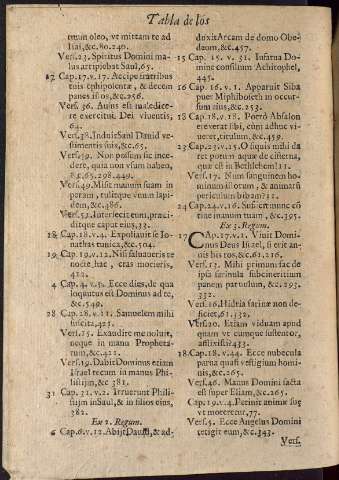 Tabla de los
tuum oleo, vt mittam te ad
Isai, &c. 80. 240.
Vers. 23. Spiritus Domini ma-
lus arripiebat Saul, 65.
17 Cap. 17. v. 17. Accipe fratribus
tuis ephi polentæ, & decem
panes istos, &c. 256.
Vers. 36. Ausus est maledice-
re exercitui Dei viuentis,
64.
Vers. 38. Induit Saul Dauid ve-
stimentis suis, &c. 65.
Vers. 39. Non possum sic ince-
dere, quia non vsum habeo,
&c. 65. 298. 449.
Vers. 49. Misit manum suam in
peram, tulitque vnum lapi-
dem, &c. 486.
Vers. 51. Interfecit eum, præci-
ditque caput eius, 33.
18 Cap. 18. v. 4. Expoliauit se Io-
nathas tunica, &c. 504.
19 Cap. 19. v. 12. Nisi saluaueris te
nocte hac, cras morieris,
422.
4 Cap. 4. v. 5. Ecce dies, de qua
loquutus est Dominus ad te,
&c. 549.
28 Cap. 28. v. 11. Samuelem mihi
suscita, 425.
Vers. 15. Exaudire me noluit,
neque in manu Propheta-
rum, &c. 421.
Vers. 19. Dabit Dominus etiam
Israel tecum in manus Phi-
listijm, &c. 381.
31 Cap. 31. v. 2. Irruerunt Phili-
stijm in Saul, & in filios eius,
382.
Ex 2. Regum.
6 Cap. 6. v. 12. Abijt Dauid, & ad-
duxit Arcam de domo Obe-
deom, &c. 457.
15 Cap. 15. v. 31. Infatua Do-
mine consilium Achitophel,
445.
16 Cap. 16. v. 1. Apparuit Siba
puer Miphiboseth in occur-
sum eius, &c. 253.
18 Cap. 18. v. 18. Porrò Absalon
erexerat sibi, cùm adhuc vi-
ueret, titulum, &c. 459.
23 Cap. 23. v. 15. O si quis mihi da
ret potum aquæ de cisterna,
quæ est in Bethlehem! 11.
Vers. 17. Num sanguinem ho-
minum istorum, & animarũ
periculum bibam? 11.
24 Cap. 24. v. 16. Sufficit nunc cõ
tine manum tuam, &c. 395.
Ex 3. Regum.
17 Cap. 17. v. 1. Viuit Domi-
nus Deus Israel, si erit an-
nis his ros, &c. 61. 216.
Vers. 13. Mihi primum fac de
ipsa farinula subcineritium
panem paruulum, &c. 293.
332.
Vers. 16. Hidria farinæ non de-
ficiet, 61. 332.
Vers. 20. Etiam viduam apud
quam vt cumque sustentor,
afflixisti? 433.
18 Cap. 18. v. 44. Ecce nubecula
parua quasi vestigium homi-
nis, &c. 265.
Vers. 46. Manus Domini facta
est super Eliam, &c. 265.
Cap. 19. v. 4. Petiuit animæ suę
vt moreretur, 77.
Vers. 5. Ecce Angelus Domini
tetigit eum, &c. 343.
Vers.